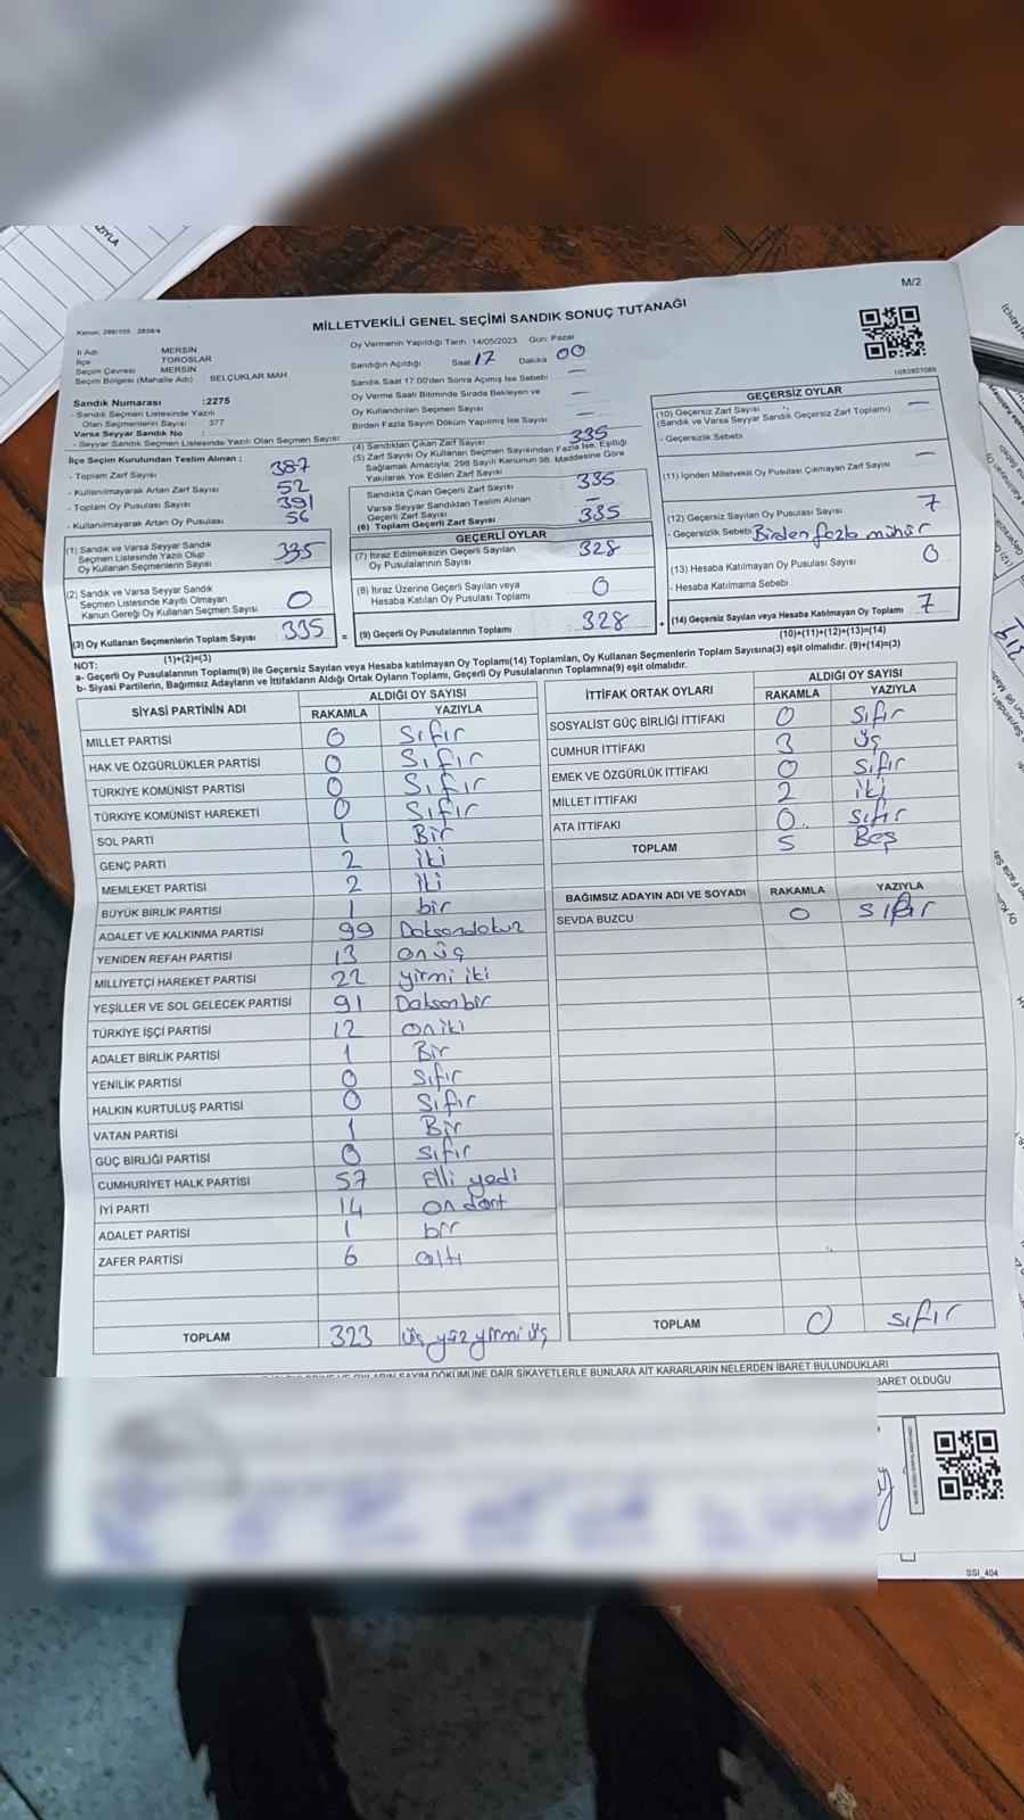 YAZIYLA
M/2
MİLLETVEKİLİ GENEL SEÇİMİ SANDIK SONUÇ TUTANAĞI
İl Adı MERSİN
İlçe TOROSLAR
Seçim Çevresi MERSİN
Seçim Bölgesi (Mahalle Adı) SELÇUKLAR MAH.
Oy Vermenin Yapıldığı Tarih: 14/05/2023 Gün: Pazar
Sandığın Açıldığı Saat 17 Dakika 00
Sandık Saat 17:00'den Sonra Açılmış İse Sebebi —
Oy Verme Saati Bitiminde Sırada Bekleyen ve
Oy Kullandırılan Seçmen Sayısı —
Birden Fazla Sayım Döküm Yapılmış İse Sayısı —
Sandık Numarası :2275
- Sandık Seçmen Listesinde Yazılı
Olan Seçmenlerin Sayısı : 377
Varsa Seyyar Sandık No :
- Seyyar Sandık Seçmen Listesinde Yazılı Olan Seçmen Sayısı
İlçe Seçim Kurulundan Teslim Alınan :
- Toplam Zarf Sayısı 387
- Kullanılmayarak Artan Zarf Sayısı 52
- Toplam Oy Pusulası Sayısı 391
- Kullanılmayarak Artan Oy Pusulası 56
(1) Sandık ve Varsa Seyyar Sandık
Seçmen Listesinde Yazılı Olup
Oy Kullanan Seçmenlerin Sayısı 335
(2) Sandık ve Varsa Seyyar Sandık
Seçmen Listesinde Kayıtlı Olmayan
Kanun Gereği Oy Kullanan Seçmen Sayısı 0
(3) Oy Kullanan Seçmenlerin Toplam Sayısı 335
(1)+(2)=(3)
(4) Sandıktan Çıkan Zarf Sayısı 335
(5) Zarf Sayısı Oy Kullanan Seçmen Sayısından Fazla İse, Eşitliği
Sağlamak Amacıyla; 298 Sayılı Kanunun 98. Maddesine Göre
Yakılarak Yok Edilen Zarf Sayısı
Sandıkta Çıkan Geçerli Zarf Sayısı 335
Varsa Seyyar Sandıktan Teslim Alınan
Geçerli Zarf Sayısı —
(6) Toplam Geçerli Zarf Sayısı 335
GEÇERLİ OYLAR
(7) İtiraz Edilmeksizin Geçerli Sayılan
Oy Pusulalarının Sayısı 328
(8) İtiraz Üzerine Geçerli Sayılan veya
Hesaba Katılan Oy Pusulası Toplamı 0
= (9) Geçerli Oy Pusulalarının Toplamı 328
1083907089
GEÇERSİZ OYLAR
(10) Geçersiz Zarf Sayısı —
(Sandık ve Varsa Seyyar Sandık Geçersiz Zarf Toplamı)
- Geçersizlik Sebebi
(11) İçinden Milletvekili Oy Pusulası Çıkmayan Zarf Sayısı —
(12) Geçersiz Sayılan Oy Pusulası Sayısı 7
- Geçersizlik Sebebi Birden fazla mühür
(13) Hesaba Katılmayan Oy Pusulası Sayısı 0
- Hesaba Katılmama Sebebi
+ (14) Geçersiz Sayılan veya Hesaba Katılmayan Oy Toplamı 7
(10)+(11)+(12)+(13)=(14)
NOT:
a- Geçerli Oy Pusulalarının Toplamı(9) ile Geçersiz Sayılan veya Hesaba katılmayan Oy Toplamı(14) Toplamları, Oy Kullanan Seçmenlerin Toplam Sayısına(3) eşit olmalıdır. (9)+(14)=(3)
b- Siyasi Partilerin, Bağımsız Adayların ve İttifakların Aldığı Ortak Oyların Toplamı, Geçerli Oy Pusulalarının Toplamına(9) eşit olmalıdır.
SİYASİ PARTİNİN ADI ALDIĞI OY SAYISI
RAKAMLA YAZIYLA
MİLLET PARTİSİ 0 Sıfır
HAK VE ÖZGÜRLÜKLER PARTİSİ 0 Sıfır
TÜRKİYE KOMÜNİST PARTİSİ 0 Sıfır
TÜRKİYE KOMÜNİST HAREKETİ 0 Sıfır
SOL PARTİ 1 Bir
GENÇ PARTİ 2 iki
MEMLEKET PARTİSİ 2 iki
BÜYÜK BİRLİK PARTİSİ 1 bir
ADALET VE KALKINMA PARTİSİ 99 Doksandokuz
YENİDEN REFAH PARTİSİ 13 onüç
MİLLİYETÇİ HAREKET PARTİSİ 22 yirmi iki
YEŞİLLER VE SOL GELECEK PARTİSİ 91 Doksanbir
TÜRKİYE İŞÇİ PARTİSİ 12 oniki
ADALET BİRLİK PARTİSİ 1 Bir
YENİLİK PARTİSİ 0 Sıfır
HALKIN KURTULUŞ PARTİSİ 0 Sıfır
VATAN PARTİSİ 1 Bir
GÜÇ BİRLİĞİ PARTİSİ 0 Sıfır
CUMHURİYET HALK PARTİSİ 57 Elli yedi
İYİ PARTİ 14 on dört
ADALET PARTİSİ 1 bir
ZAFER PARTİSİ 6 altı
TOPLAM 323 üç yüz yirmi üç
İTTİFAK ORTAK OYLARI ALDIĞI OY SAYISI
RAKAMLA YAZIYLA
SOSYALİST GÜÇ BİRLİĞİ İTTİFAKI 0 Sıfır
CUMHUR İTTİFAKI 3 üç
EMEK VE ÖZGÜRLÜK İTTİFAKI 0 Sıfır
MİLLET İTTİFAKI 2 iki
ATA İTTİFAKI 0. Sıfır
TOPLAM 5 Beş
BAĞIMSIZ ADAYIN ADI VE SOYADI RAKAMLA YAZIYLA
SEVDA BUZCU 0 sıfır
TOPLAM 0 sıfır
SAYIM DÖKÜMÜNE DAİR ŞİKAYETLERLE BUNLARA AİT KARARLARIN NELERDEN İBARET BULUNDUKLARI
BARET OLDUĞU
SSI_404